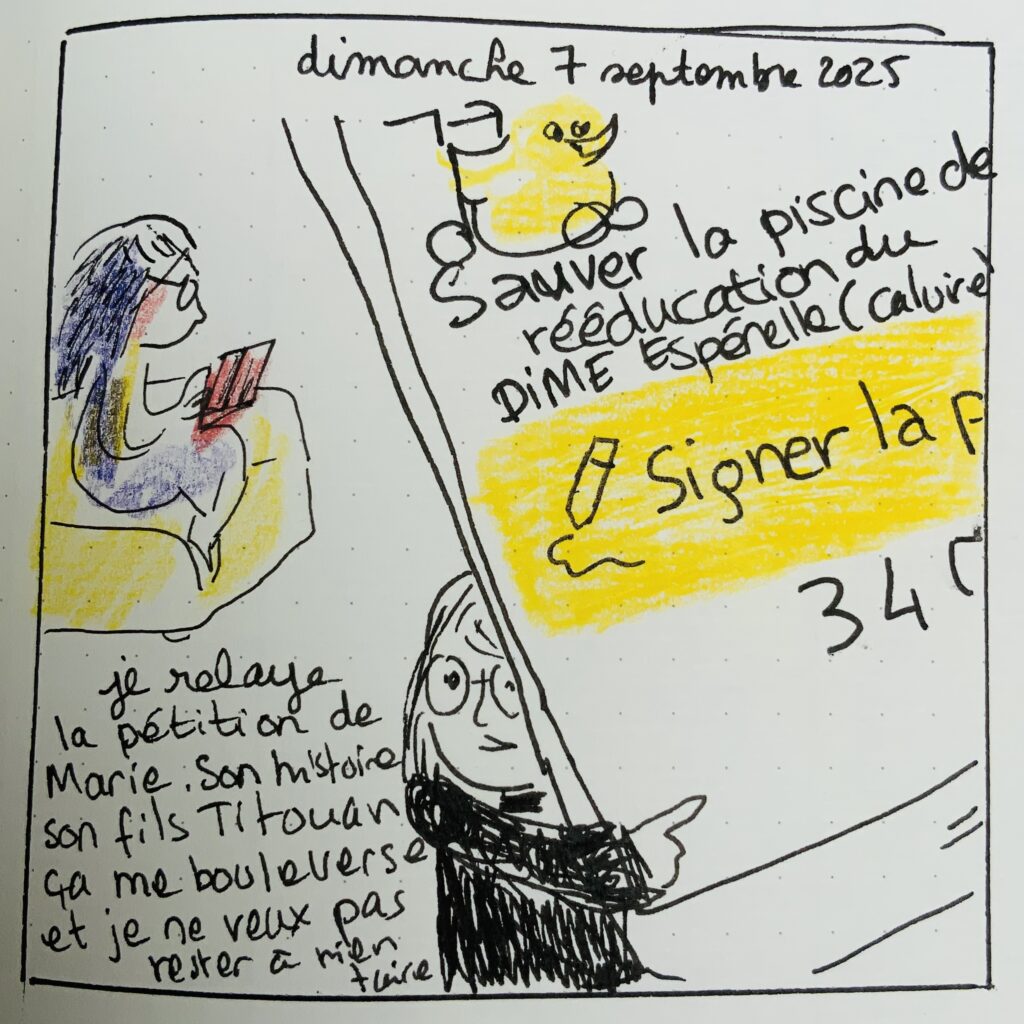 dimanche 7 septembre 2025
Sauver la piscine de
rééducation du
DIME Espérelle (Caluire)
Signer la p
34
je relaye
la pétition de
Marie. Son histoire
son fils Titouan
ça me bouleverse
et je ne veux pas
rester à rien
faire